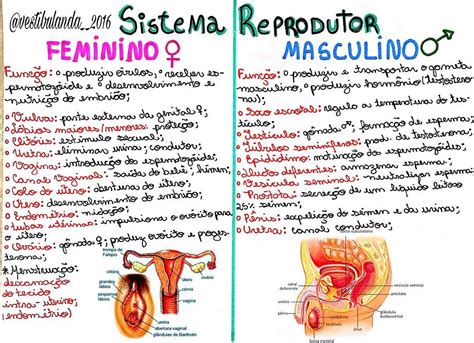 @vestibulanda_2016
Sistema Reprodutor
FEMININO ♀
Função: • produzir óvulos, • receber es-
permatozóide e • desenvolvimento e
nutrição do embrião;
• Vulva: parte externa da genital ♀;
• lábios maiores/menores: proteção;
• Clitóris: estímulo sexual;
• Uretra: eliminar urina; condutor;
• Vagina: introdução do espermatozóide;
• Canal Vaginal: saída do bebê, hímen;
• Colo do útero: abertura do útero;
• Útero: desenvolvimento do embrião;
• Endométrio: nidação;
• tubas uterinas: impulsiona o ovócito para
o útero;
• Ovário: gônada ♀; produz ovócito e proges-
terona;
* Menstruação:
descamação
do tecido
intra-uterino
(endométrio)
trompa de
Falópio
ovário
útero
clitóris
grandes
lábios
pequenos
lábios
uretra
abertura vaginal
glândulas de Bartholin
MASCULINO ♂
Função: • produzir e transportar o gameta
masculino, • produzir hormônio (testostero-
na);
• Saco escrotal: regula a temperatura do tes-
tículo;
• Testículo: gônada ♂, formação de esperma;
• Túbulos seminíferos: prod. de testosterona;
• Epidídimo: maturação do espermatozóide;
• Ductos deferentes: armazenar esperma;
• Vesícula seminal: neutraliza espermato-
zóide, produção de um líquido leitoso
25% sêmen;
• Pênis: expelição do sêmen e da urina;
• Uretra: canal condutor;
vesículas seminais
canal
deferente
uretra
pênis
próstata
epidídimo
testículo